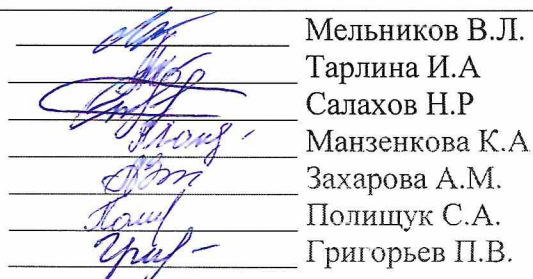 Мельников В.Л.
Тарлина И.А
Салахов Н.Р
Манзенкова К.А
Захарова А.М.
Полищук С.А.
Григорьев П.В.